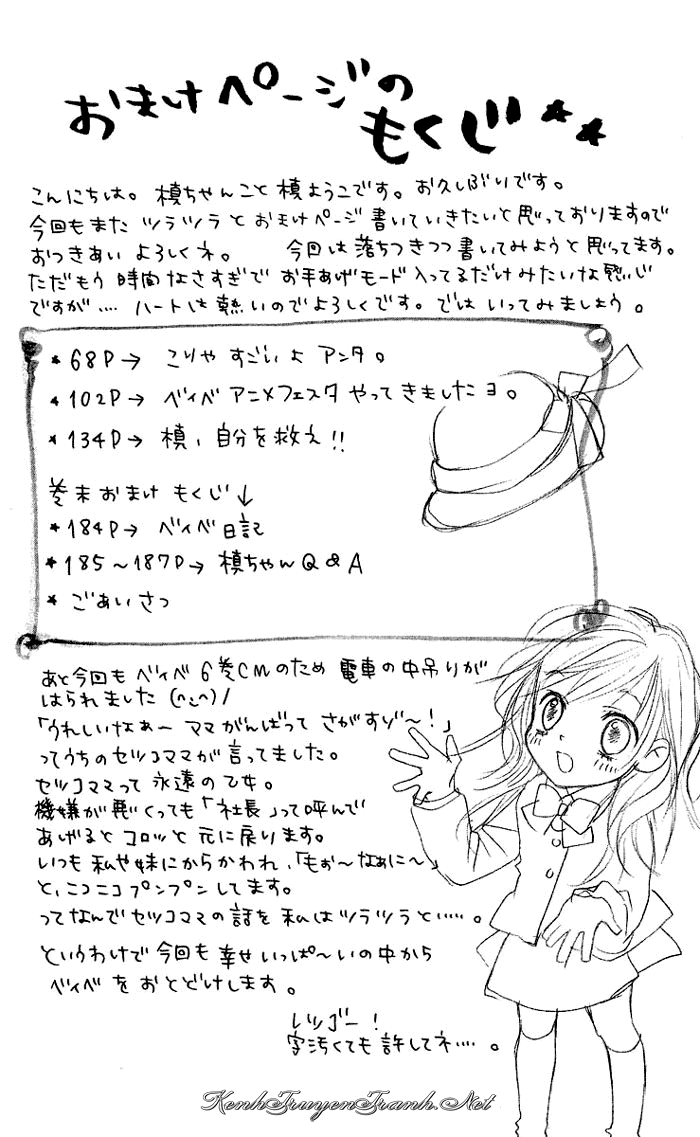 おまけページの
もくじ★★
こんにちは。槙ちゃんこと槙ようこです。お久しぶりです。
今回もまたツラツラとおまけページ書いていきたいと思っておりますので
おつきあいよろしくネ。 今回は落ちつきつつ書いてみようと思ってます。
ただもう時間なさすぎでお手あげモード入ってるだけみたいな感じ
ですが…ハートは熱いのでよろしくです。ではいってみましょう。
★68P→ こりゃすごいよアンタ。
★102P→ ベイベアニメフェスタやってきましたヨ。
★134P→ 槙、自分を救え!!
巻末おまけもくじ↓
★184P→ ベイベ日記
★185〜187P→ 槙ちゃんQ&A
★ごあいさつ
あと今回もベイベ6巻CMのため電車の中吊りが
はられました(^^)/
「うれしいなぁーママがんばってさがすゾ〜!」
ってうちのセツコママが言ってました。
セツコママって永遠の乙女。
機嫌が悪くっても「社長」って呼んで
あげるとコロッと元に戻ります。
いつも私や妹にからかわれ、「もぉ〜なぁに〜」
と、ニコニコプンプンしてます。
ってなんでセツコママの話を私はツラツラと……。
というわけで今回も幸せいっぱ〜いの中から
ベイベをおとどけします。
レッツゴー!
字汚くても許してネ…。
KenhTruyenTranh.Net